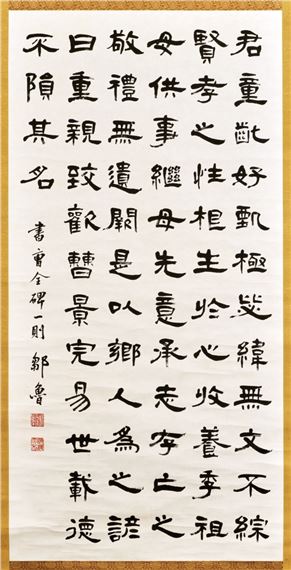 君童齔好甄極毖緯無文不綜
賢孝之性根生於心收養季祖
母供事繼母先意承志存亡之
敬禮無遺闕是以鄉人為之諺
曰重親致歡曹景完易世載德
不隕其名
書曹全碑一則 鄒魯